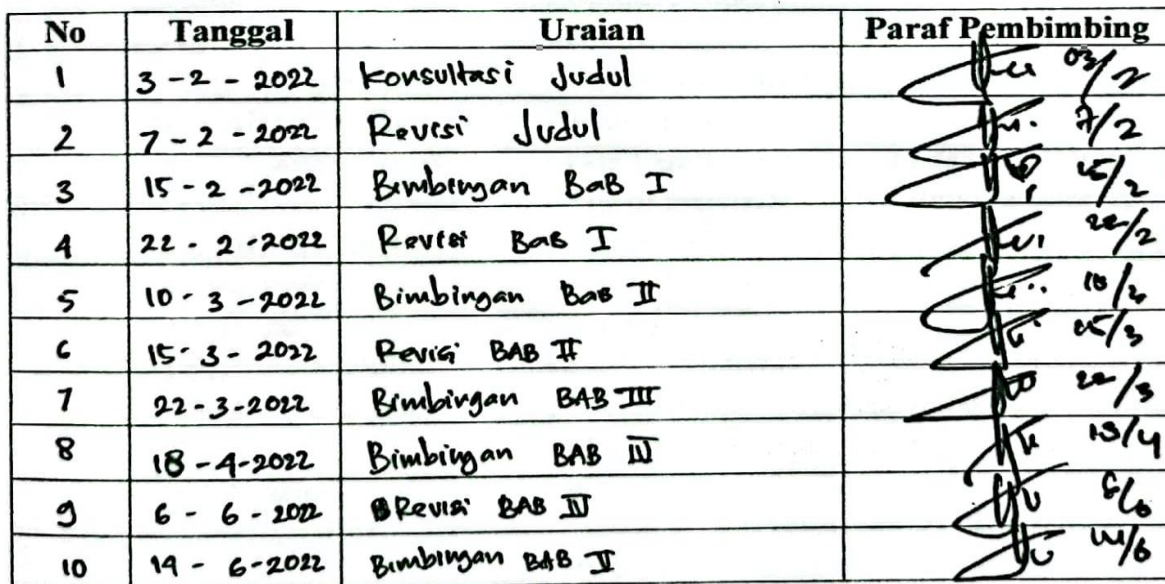 No Tanggal Uraian Paraf Pembimbing
1 3-2-2022 Konsultasi Judul 03/2
2 7-2-2022 Revisi Judul 7/2
3 15-2-2022 Bimbingan BaB I 15/2
4 22-2-2022 Revisi Bab I 22/2
5 10-3-2022 Bimbingan Bab II
6 15-3-2022 Revisi BAB II 15/3
7 22-3-2022 Bimbingan BAB III 22/3
8 18-4-2022 Bimbingan BAB IV 18/4
9 6-6-2022 Revisi BAB IV 6/6
10 14-6-2022 Bimbingan BAB 14/6